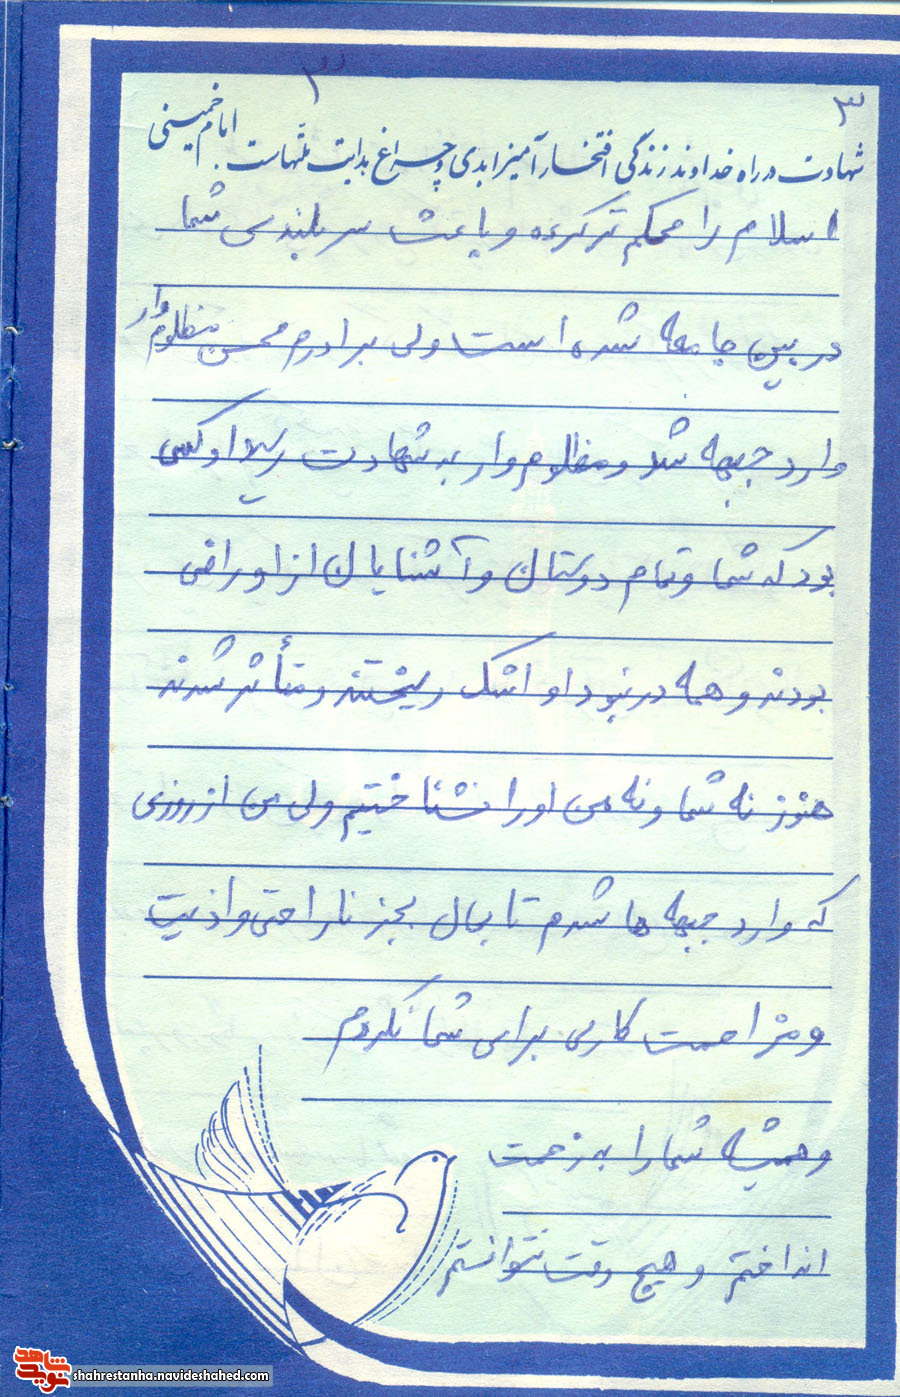 ۳
۳
شهادت در راه خداوند زندگی افتخارآمیز ابدی و چراغ هدایت ملتهاست. امام خمینی
اسلام را محکم تر کرده و باعث سربلندی شما
در بین جامعه شده است ولی برادرم محسن مظلوم وار
وارد جبهه شد و مظلوم وار به شهادت رسید او کسی
بود که شما و تمام دوستان و آشنایان از او راضی
بودند و همه در نبود او اشک ریختند و متأثر شدند
هنوز نه شما و نه من او را نشناختیم ولی من از روزی
که وارد جبهه ها شدم تا بحال بجز ناراحتی و اذیت
و مزاحمت کاری برای شما نکردم
و همیشه شما را به زحمت
انداختم و هیچ وقت نتوانستم
شاهد
نوید
shahrestanha.navideshahed.com